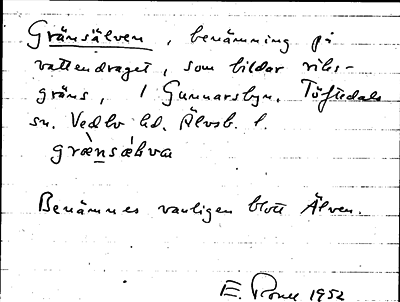 Gränsälven, benämning på
vattendraget, som bildar riks-
gräns, i Gunnarsbyn. Töftedals
sn. Vedbo hd. Älvsb. l.
græ̀nsæ̀lva
Benämnes vanligen blott Älven.
E. 1952